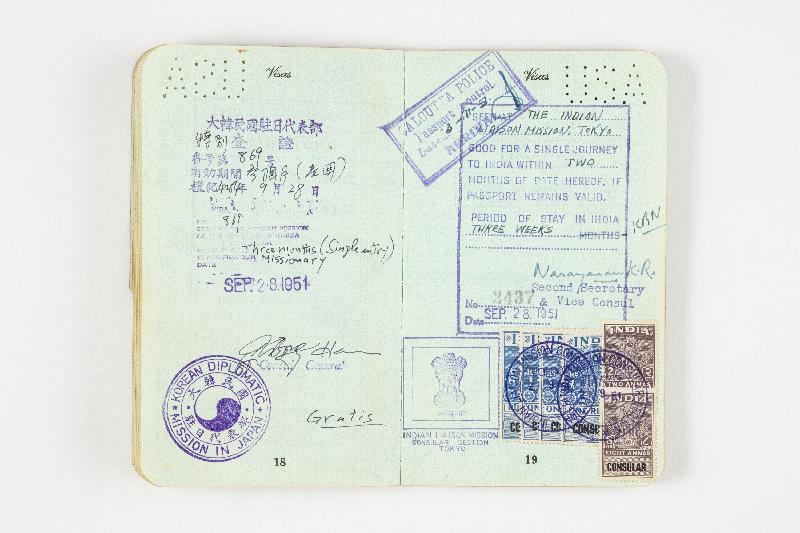 Visas
大韓民國駐日代表部
特別 査 證
番号第 869 号
有効期間 參個月
檀紀4284年 9月 28日
869
KOREAN MISSION
Three months (Single entry)
Missionary
DATE
SEP. 28. 1951
Consul General
KOREAN DIPLOMATIC
大韓民國
駐日代表部
MISSION IN JAPAN
Gratis
18
Visas
USA
CALCUTTA POLICE
Passport Control
THE INDIAN
LIAISON MISSION, TOKYO
GOOD FOR A SINGLE JOURNEY
TO INDIA WITHIN TWO
MONTHS OF DATE HEREOF, IF
PASSPORT REMAINS VALID.
PERIOD OF STAY IN INDIA
THREE WEEKS MONTHS
Narayanan K.R.
Second Secretary
No. 2437 & Vice Consul
Date SEP. 28. 1951
INDIAN LIAISON MISSION
CONSULAR SECTION
TOKYO
INDIA
TWO ANNAS
EIGHT ANNAS
CONSULAR
19